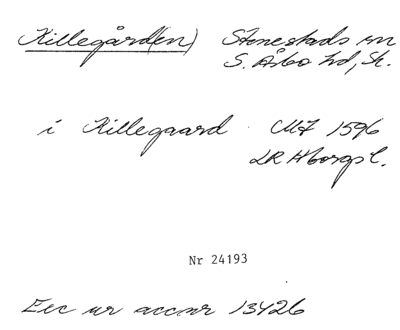 Killegård(en) Stenestads sn
S. Åsbo hd, Sk.
i Killegaard CM7 1596
LR Hborgs l.
Nr 24193
Exc ur accnr 13426